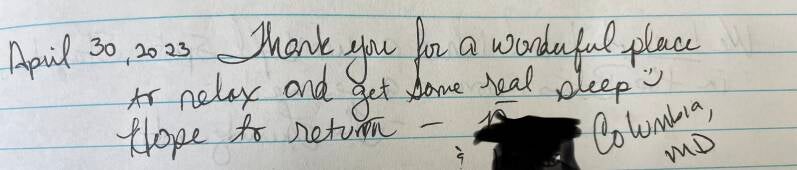 April 30, 2023 Thank you for a wonderful place
to relax and get some real sleep :)
Hope to return - 
& Columbia,
MD